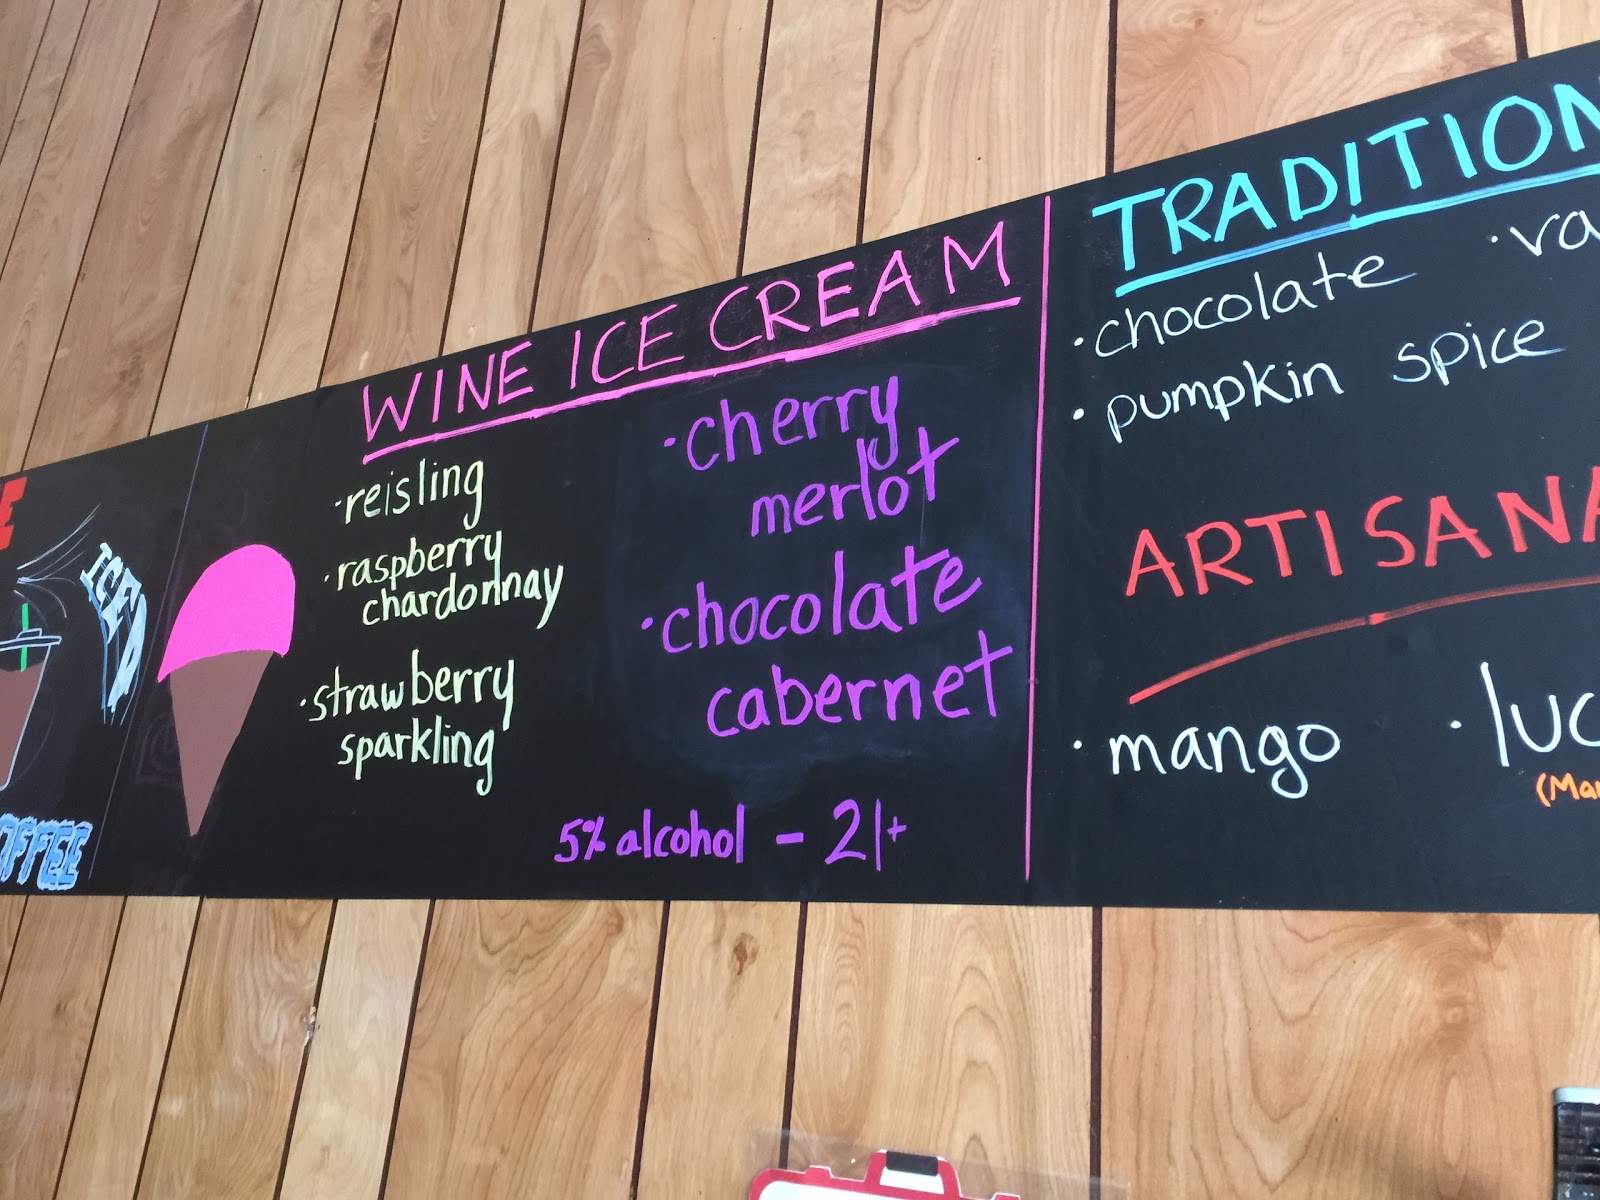 ICED
WINE ICE CREAM
·reisling
·raspberry
chardonnay
·strawberry
sparkling
·cherry
merlot
·chocolate
cabernet
5% alcohol - 21+
TRADITION
·chocolate
·pumpkin spice
ARTISANA
·mango